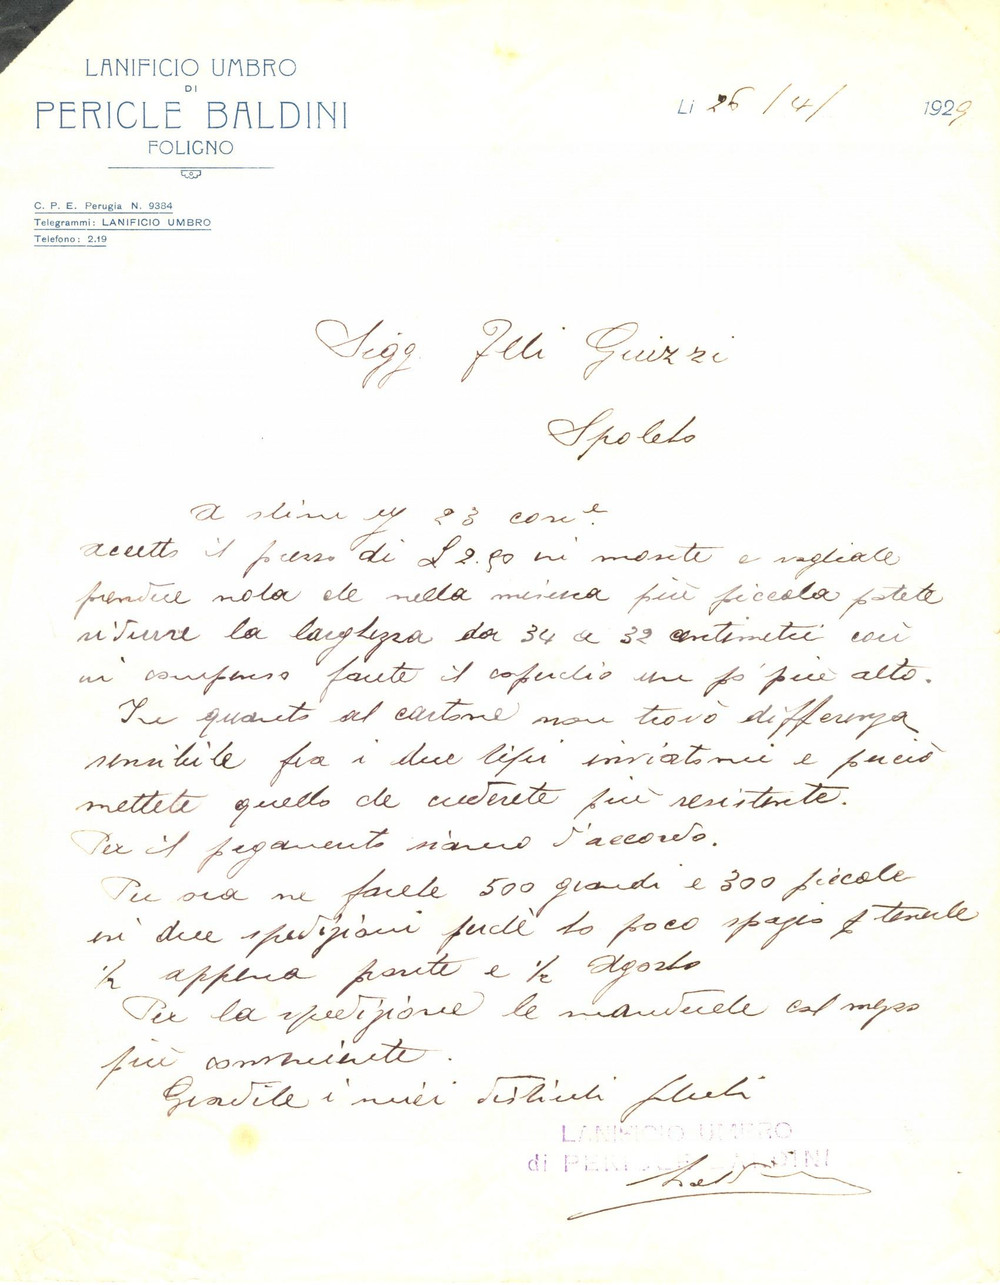 LANIFICIO UMBRO
DI
PERICLE BALDINI
FOLIGNO
C. P. E. Perugia N. 9384
Telegrammi: LANIFICIO UMBRO
Telefono: 2.19
Li 26 / 4 / 1929
Sigg. Flli Guizzi
Spoleto
A stim 23 corre.
accetto il prezzo di £ 2.50 vi e vogliate
prendere nota che nella misura più piccola potete
ridurre la larghezza da 34 a 32 centimetri così
in compenso farete il coperchio un po' più alto.
In quanto al cartone non trovo differenza
sensibile fra i due tipi inviatomi e perciò
mettete quello che crederete più resistente.
Per il pagamento siamo d'accordo.
Per ora ne farete 500 grandi e 300 piccole
in due spedizioni perché ho poco spazio p tenerle
1/2 appena pronte e 1/2 Agosto
Per la spedizione le manderete col mezzo
più conveniente.
Gradite i miei distinti saluti
LANIFICIO UMBRO
di PERICLE BALDINI
Baldini